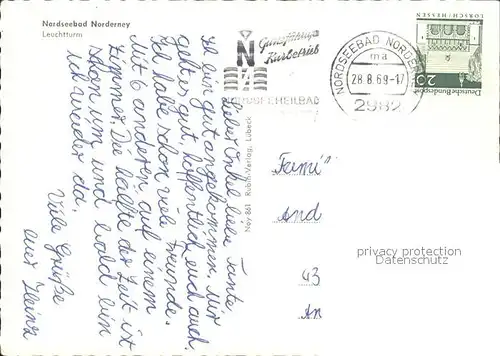 Nordseebad Norderney
Leuchtturm
Lieber Onkel, liebe Tante,
Ich bin gut angekommen. Mir
geht es gut, hoffentlich euch auch.
Ich habe schon viele Freunde.
Mit 6 anderen auf einem
Zimmer. Die hälfte der Zeit ist
schon um, und bald bin
ich wieder da.
Viele Grüße
euer Heinz
Ney-861 Rubin-Verlag, Lübeck
N
Ganzjähriger
Kurbetrieb
NORDSEEHEILBAD
NORDSEEBAD NORDERNEY
ma
28.8.69-17
2982
LORSCH / HESSEN
20
Deutsche Bundespost
Fami
And
43
An
privacy protection
Datenschutz